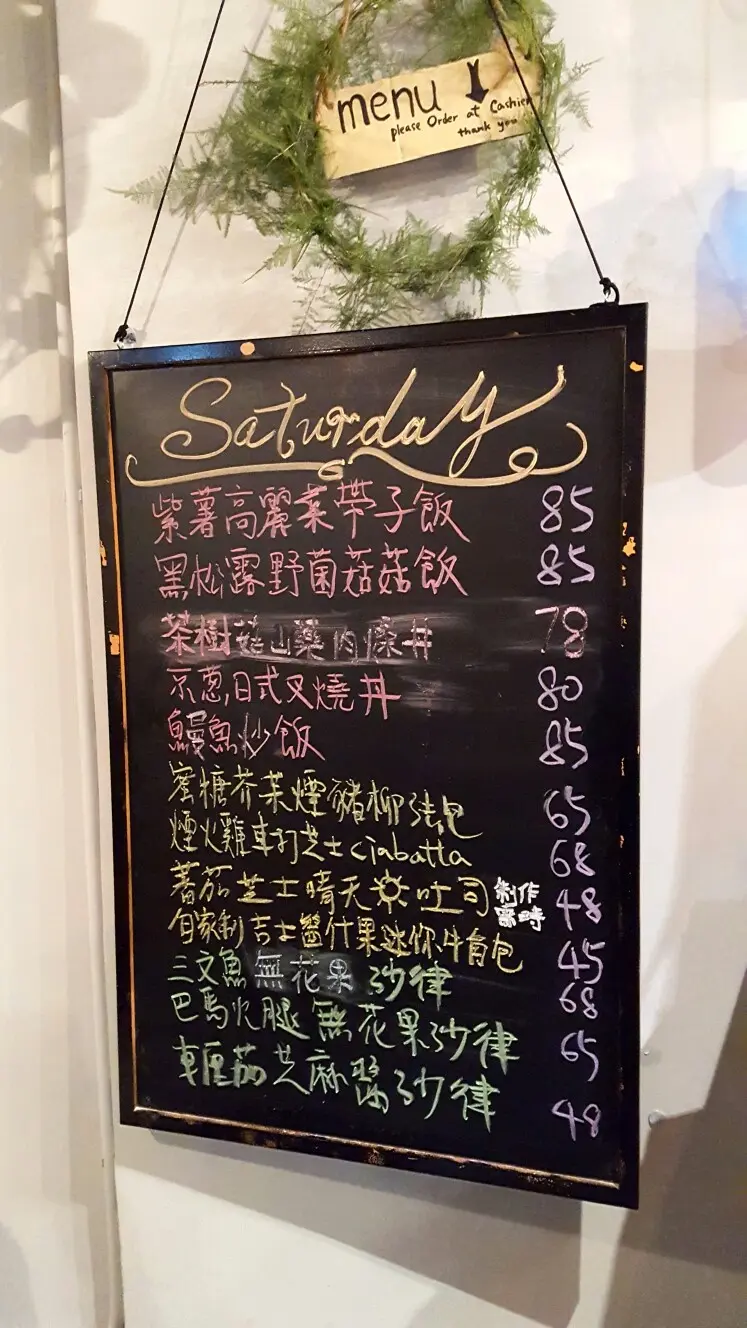 menu
please Order at Cashier
thank you
Saturday
紫薯高麗菜帶子飯 85
黑松露野菌菇菇飯 85
茶樹菇山藥肉燥丼 78
京蔥,日式叉燒丼 80
鰻魚炒飯 85
蜜糖芥茉煙豬柳法包 65
煙火雞車打芝士ciabatta 68
蕃茄芝士晴天吐司 制作需時 48
自家制吉士醬什果迷你牛角包 45
三文魚無花果沙律 68
巴馬火腿無花果沙律 65
車厘茄芝麻醬沙律 48